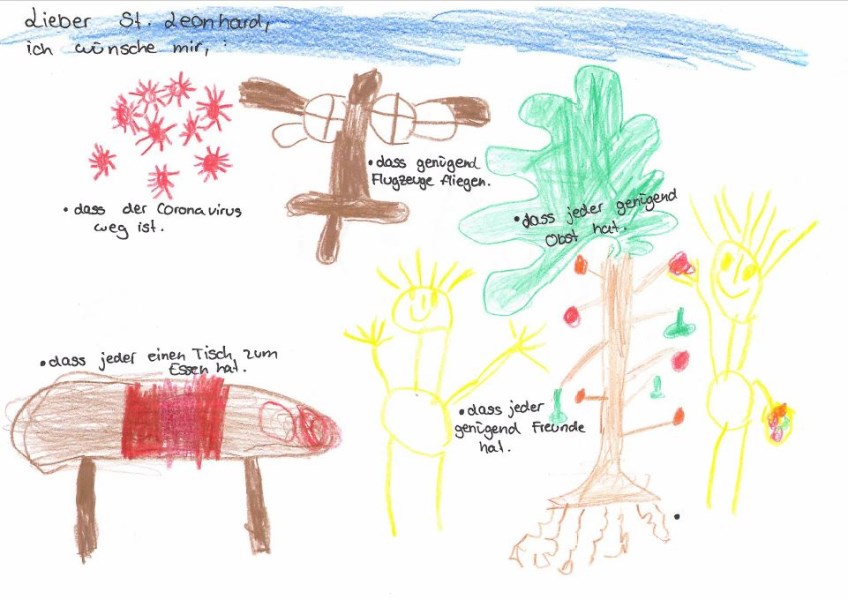 Lieber St. Leonhard,
ich wünsche mir,
• dass genügend
Flugzeuge fliegen.
• dass der Coronavirus
weg ist.
• dass jeder genügend
Obst hat.
• dass jeder einen Tisch zum
Essen hat.
• dass jeder
genügend Freunde
hat.